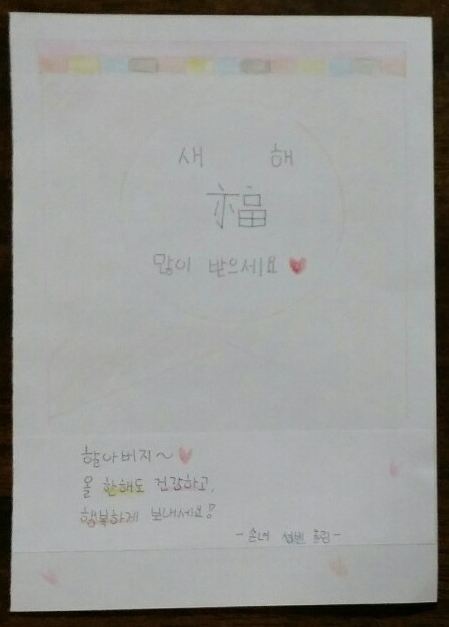 새 해
福
많이 받으세요
할아버지~
올 한해도 건강하고,
행복하게 보내세요!
- 손녀 올림 -